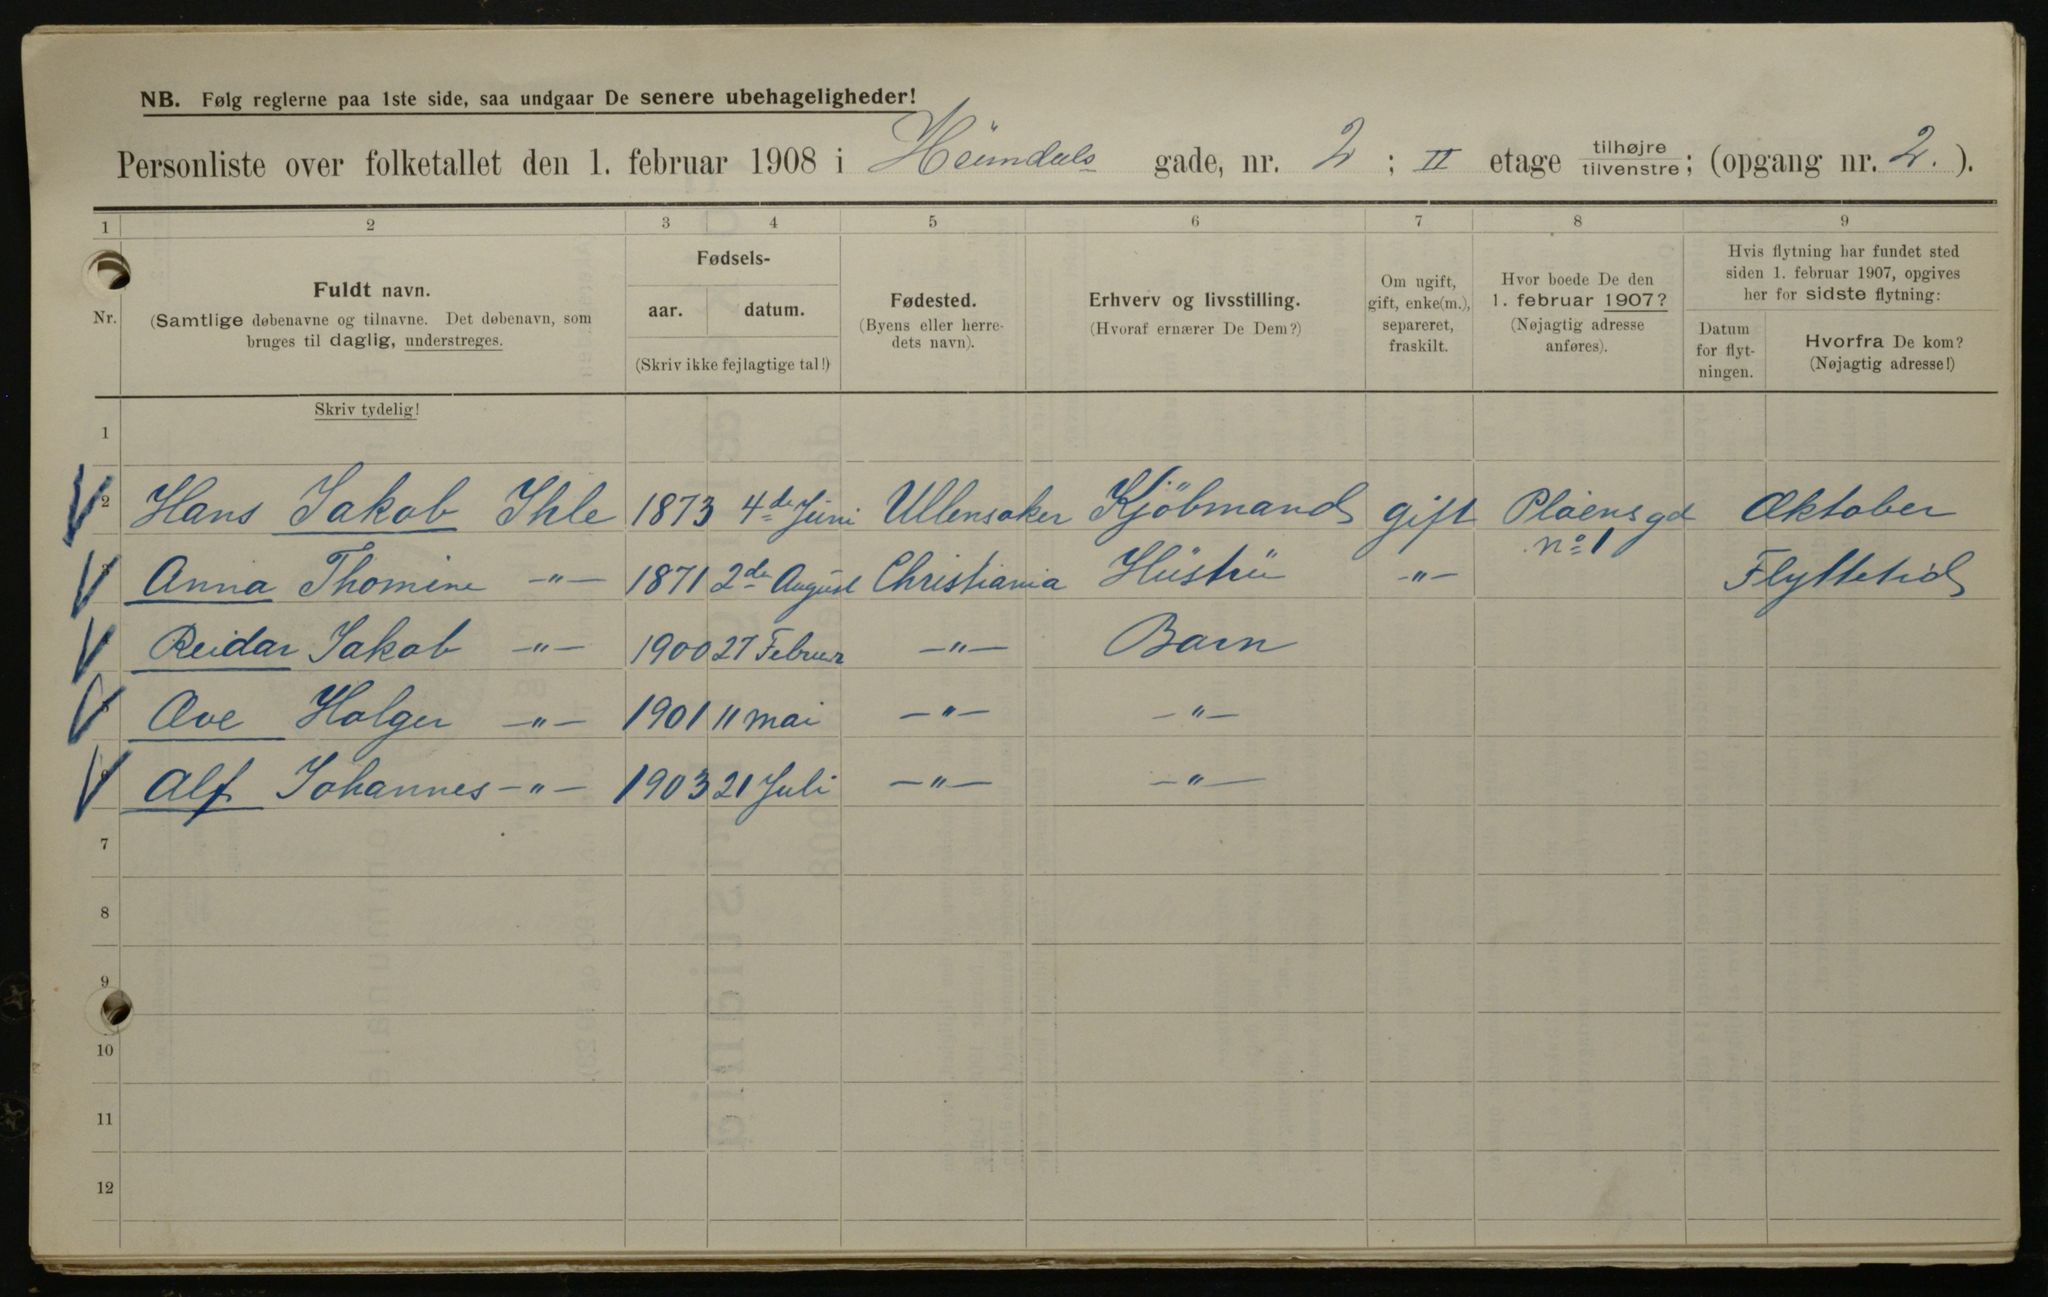 NB. Følg reglerne paa 1ste side, saa undgaar De senere ubehageligheder!
Personliste over folketallet den 1. februar 1908 i Heimdals gade, nr. 2 ; II etage tilhøjre tilvenstre; (opgang nr. 2. ).
1 2 3 4 5 6 7 8 9
Nr.
Fuldt navn.
(Samtlige døbenavne og tilnavne. Det døbenavn, som
bruges til daglig, understreges.
Fødsels-
aar. datum.
(Skriv ikke fejlagtige tal!)
Fødested.
(Byens eller herre-
dets navn).
Erhverv og livsstilling.
(Hvoraf ernærer De Dem?)
Om ugift,
gift, enke(m.),
separeret,
fraskilt.
Hvor boede De den
1. februar 1907?
(Nøjagtig adresse
anføres).
Hvis flytning har fundet sted
siden 1. februar 1907, opgives
her for sidste flytning:
Datum
for flyt-
ningen.
Hvorfra De kom?
(Nøjagtig adresse!)
Skriv tydelig!
1
2 Hans Jakob Ihle 1873 4de Juni Ullensaker Kjöbmand gift Pløensgd Oktober
no 1
3 Anna Thomine -"- 1871 2den August Christiania Hustru -"- Flyttetid
Reidar Jakob -"- 1900 27 Februar -"- Barn
Ove Holger -"- 1901 11 mai -"- -"-
Alf Johannes -"- 1903 21 Juli -"- -"-
7
8
9
10
11
12